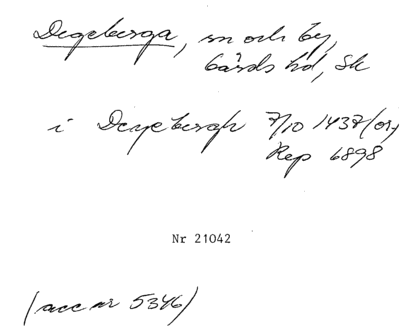 Degeberga, sn och by,
Gärds hd, Sk
i Deyebergh 7/10 1437 (or)
Rep 6898
Nr 21042
(acc nr 5346)